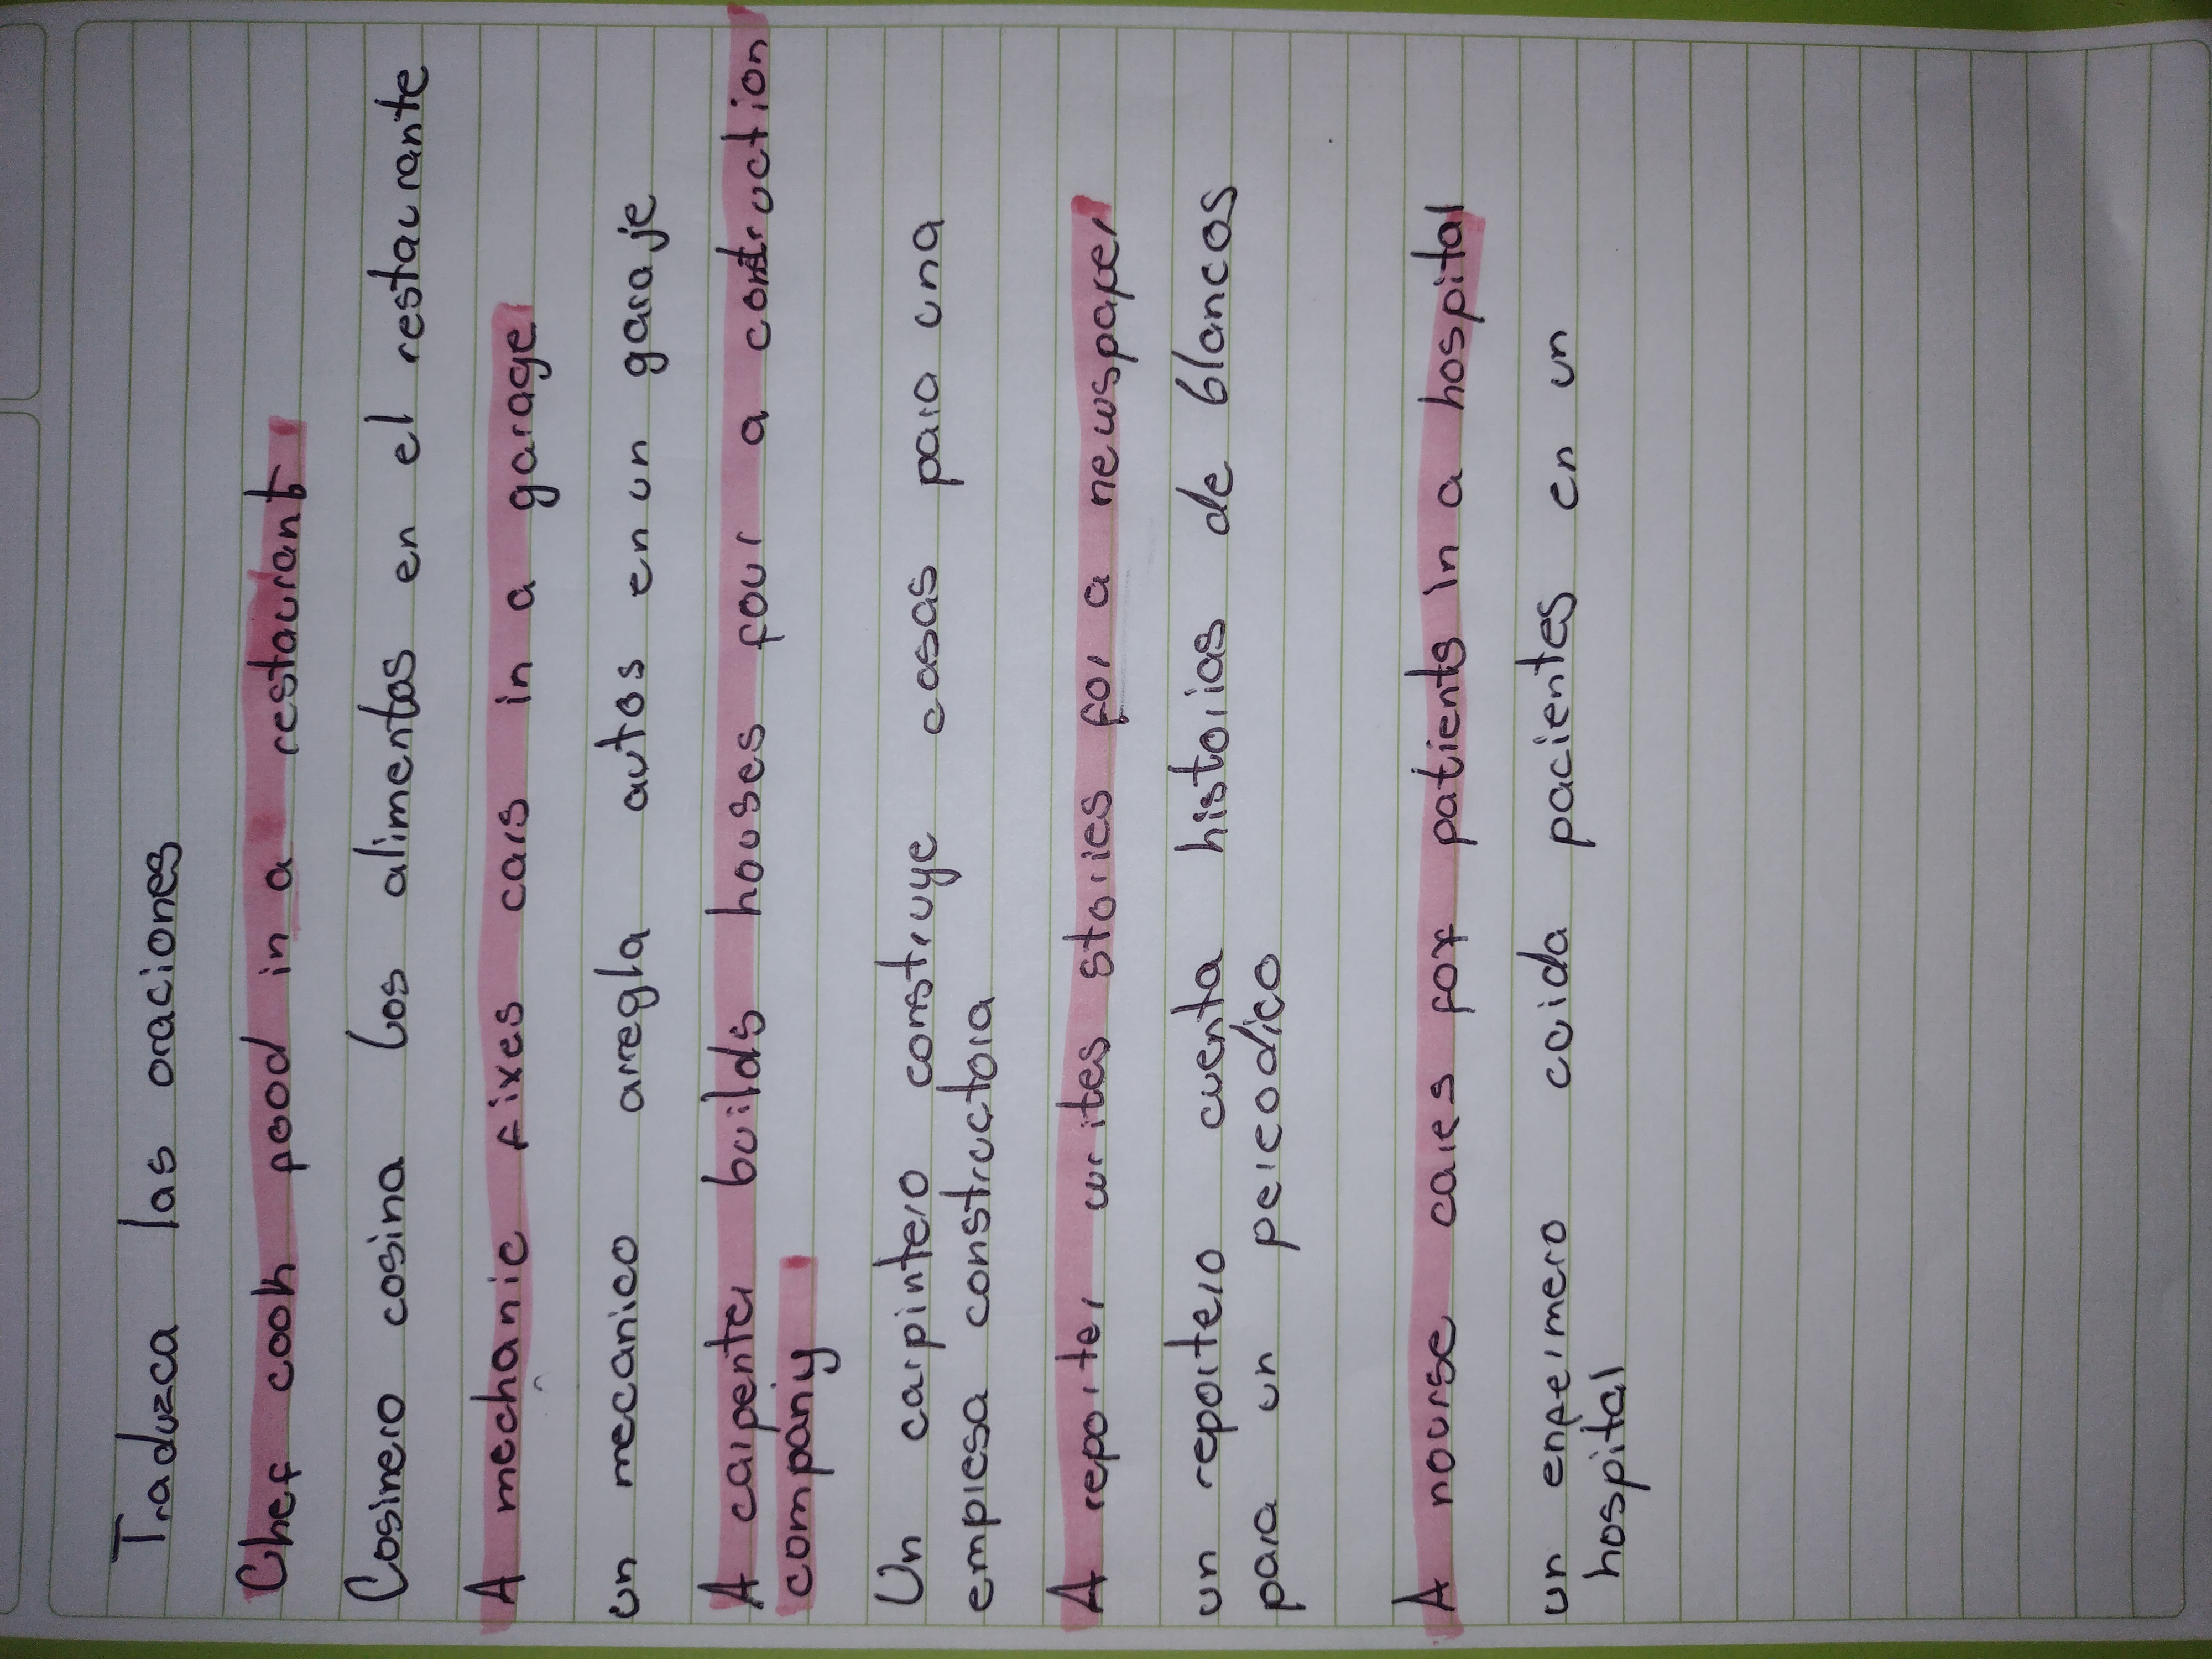 Traduzca las oraciones
Chef cook food in a restaurant
Cosinero cosina los alimentos en el restaurante
A mechanic fixes cars in a garage
un mecanico arregla autos en un garaje
A carpenter builds houses four a contruction
company
Un carpintero construye casas para una
empresa constructora
A reporter writes stories for a newspaper
un reportero cuenta historias de blancos
para un pereodico
A nourse cares for patients in a hospital
un enfermero cuida pacientes en un
hospital